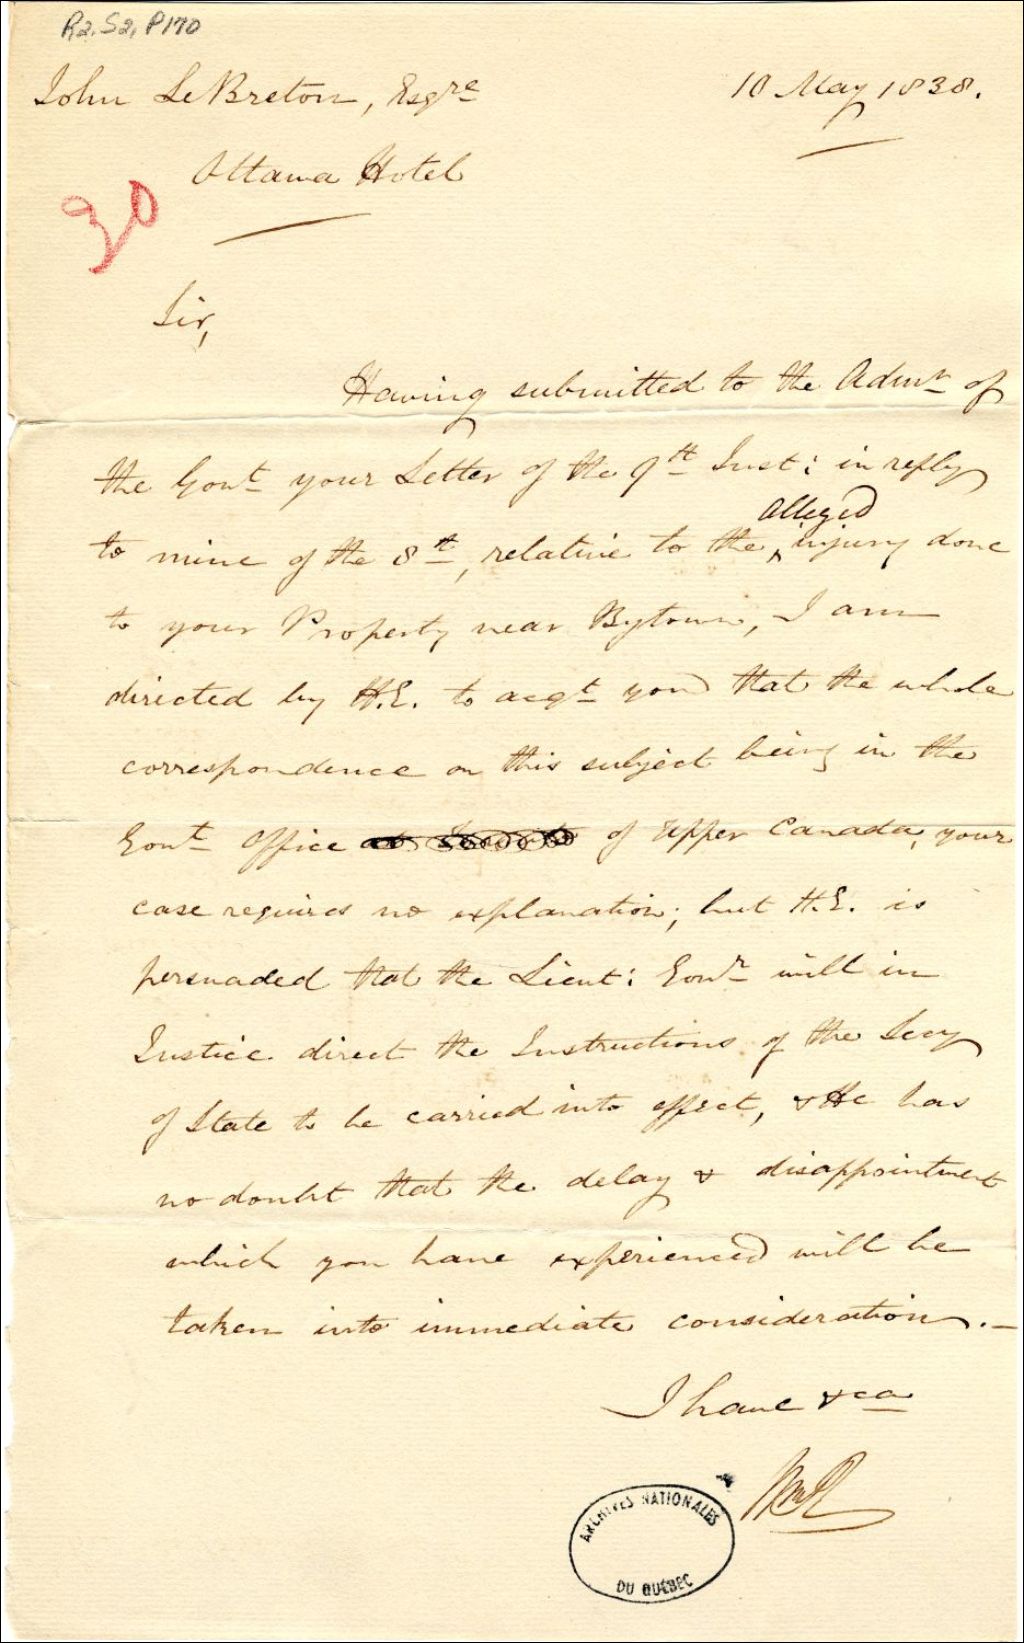 R2, S2, P170
John LeBreton, Esqre
10 May 1838.
Ottawa Hotel
30
Sir,
Having submitted to the Admr of
the Govt your Letter of the 9th Inst: in reply
alleged
to mine of the 8th, relative to the injury done
to your Property near Bytown, I am
directed by H.E. to acqt you that the whole
correspondence on this subject being in the
Govt Office of Upper Canada, your
case requires no explanation; but H.E. is
persuaded that the Lieut: Govr will in
Justice direct the Instructions of the Secy
of State to be carried into effect, & He has
no doubt that the delay & disappointment
which you have experienced will be
taken into immediate consideration.—
I have &ca
ARCHIVES NATIONALES
DU QUÉBEC